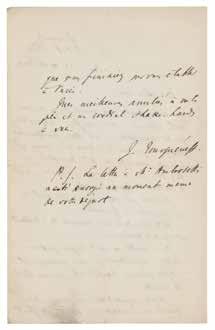 que vous finissiez par vous établir
à Paris.
Mes meilleures amitiés à votre
et un cordial shake-hands
à vous.
J. Tourguéneff
P. S. La lettre à Mr
a été envoyé au moment même
de votre